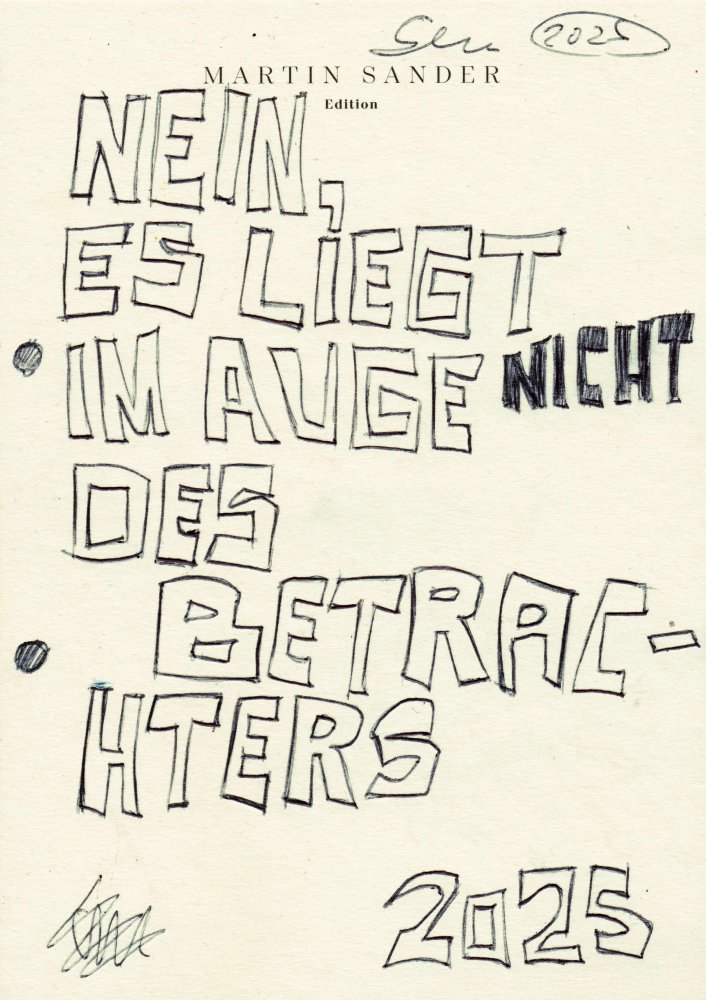 2025
MARTIN SANDER
Edition
NEIN,
ES LIEGT
IM AUGE NICHT
DES
BETRAC-
HTERS
2025